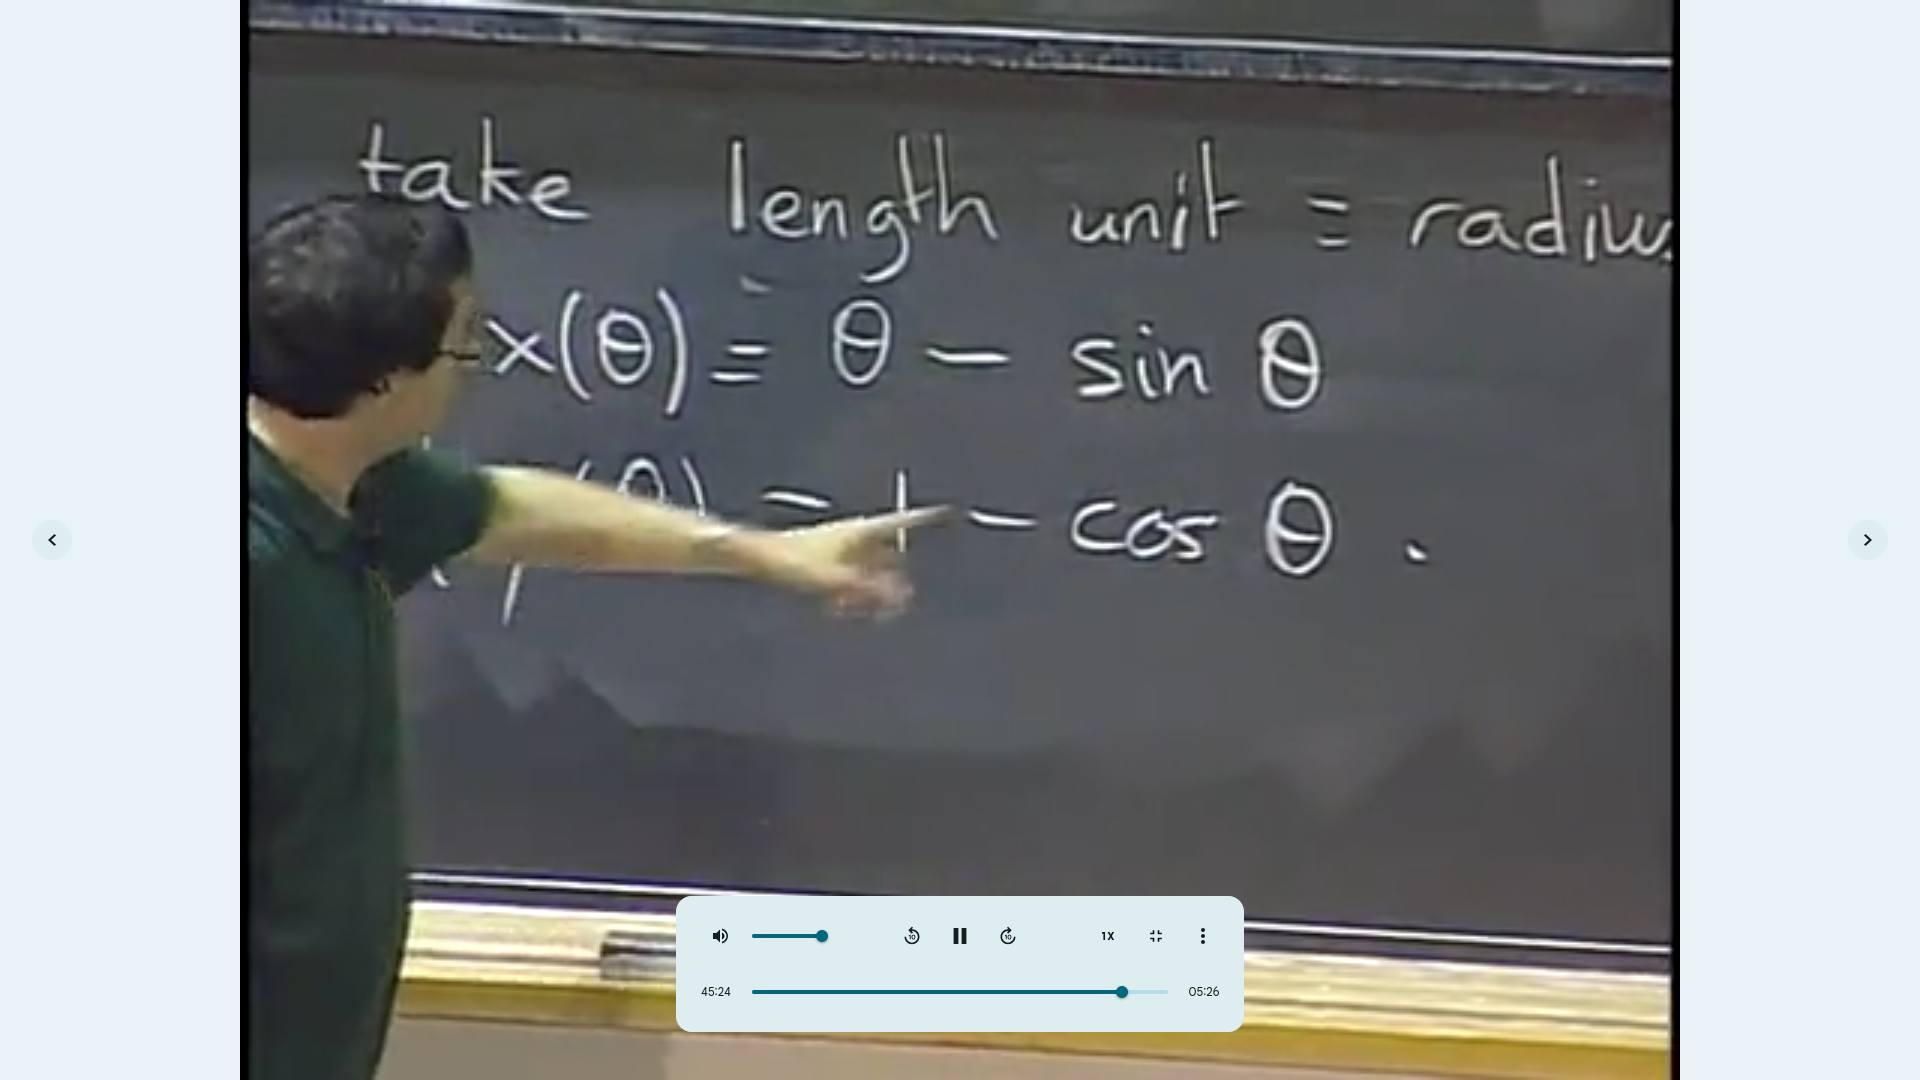 take length unit = radius
x(θ) = θ - sin θ
y(θ) = 1 - cos θ .
1X
45:24
05:26